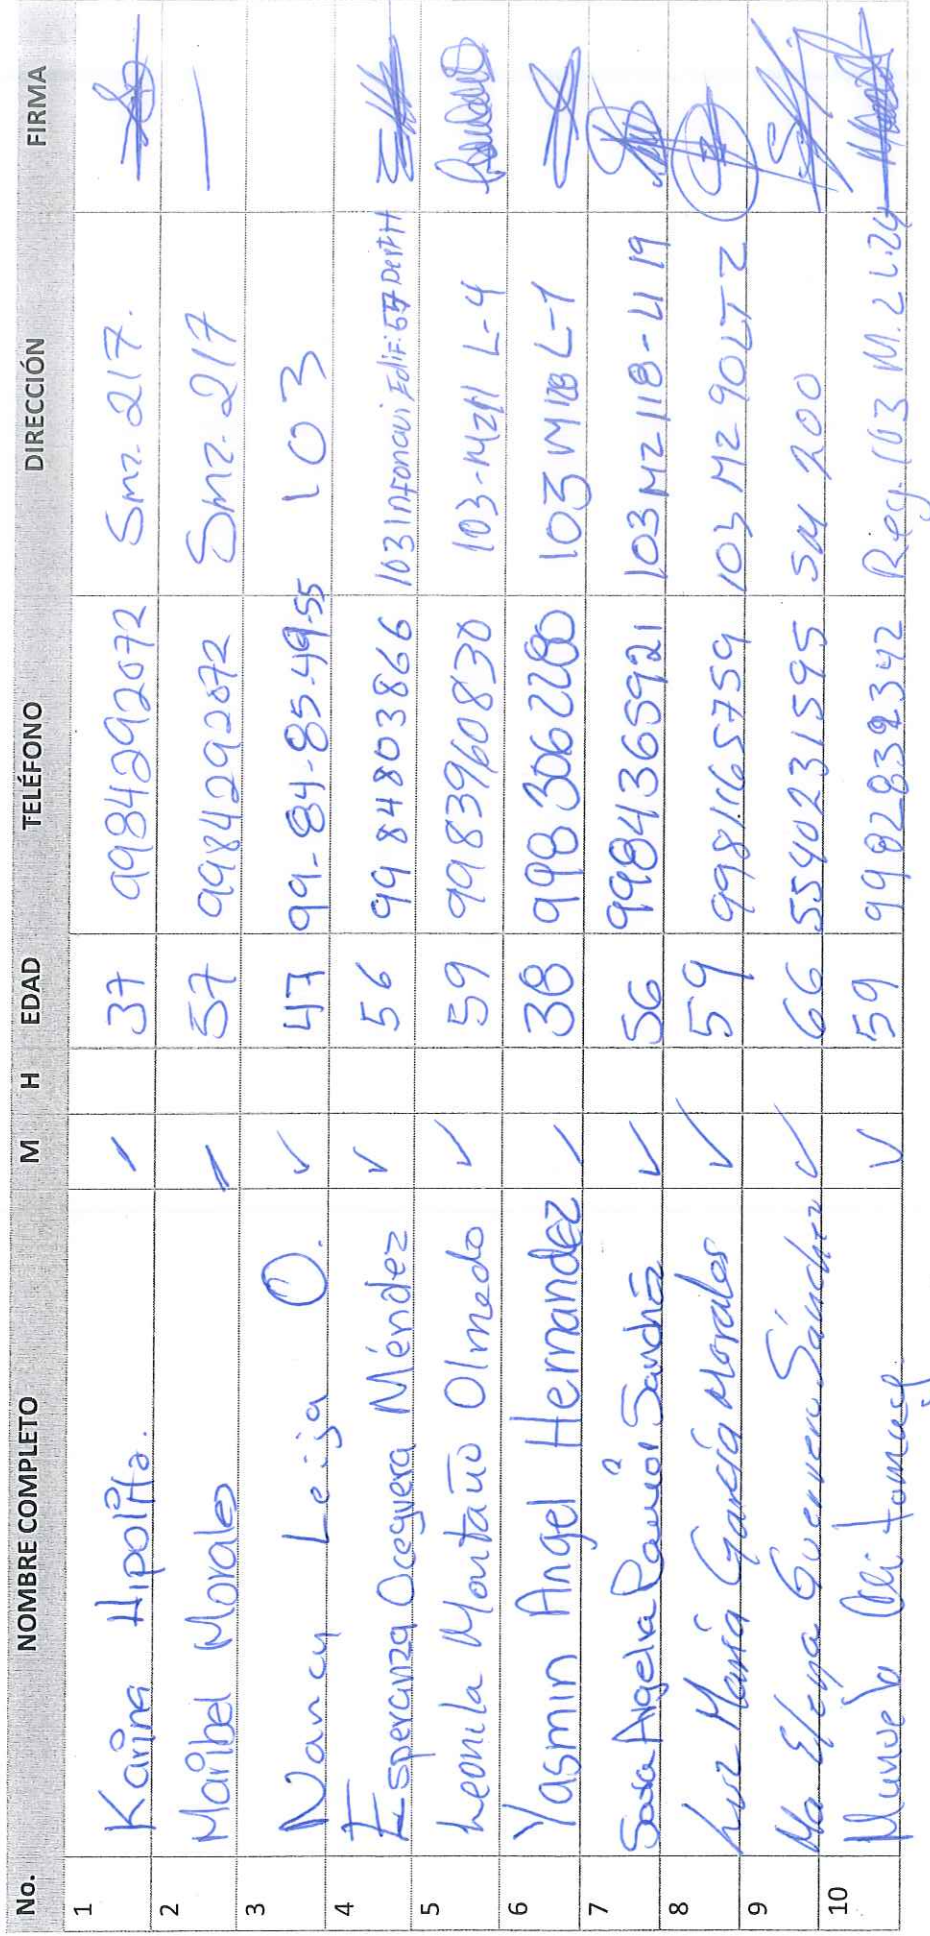 No. NOMBRE COMPLETO M H EDAD TELÉFONO DIRECCIÓN FIRMA
1 Karina Hipolito. 37 9984292072 Smz. 217.
2 Maribel Morales 57 9984292072 Smz. 217
3 Nancy Leija O. ✓ 47 99-84-85-49-55 103
4 Esperanza Oceguera Méndez ✓ 56 9984803866 103 Infonavi Edif. Dept H
5 Leonila Montaño Olmedo ✓ 59 9983960830 103-Mz11 L-4
6 Yasmin Angel Hernandez 38 9983062280 103 M 128 L-1
7 Sara Angela ✓ 56 9984365921 103 Mz 118-L 19
8 Luz María García Morales ✓ 59 9981165759 103 Mz 90 LT 2
9 Ma Elena Guerrero Sánchez ✓ 66 5540231595 SM 200
10 ✓ 59 Reg. 103 M. 2 L-24